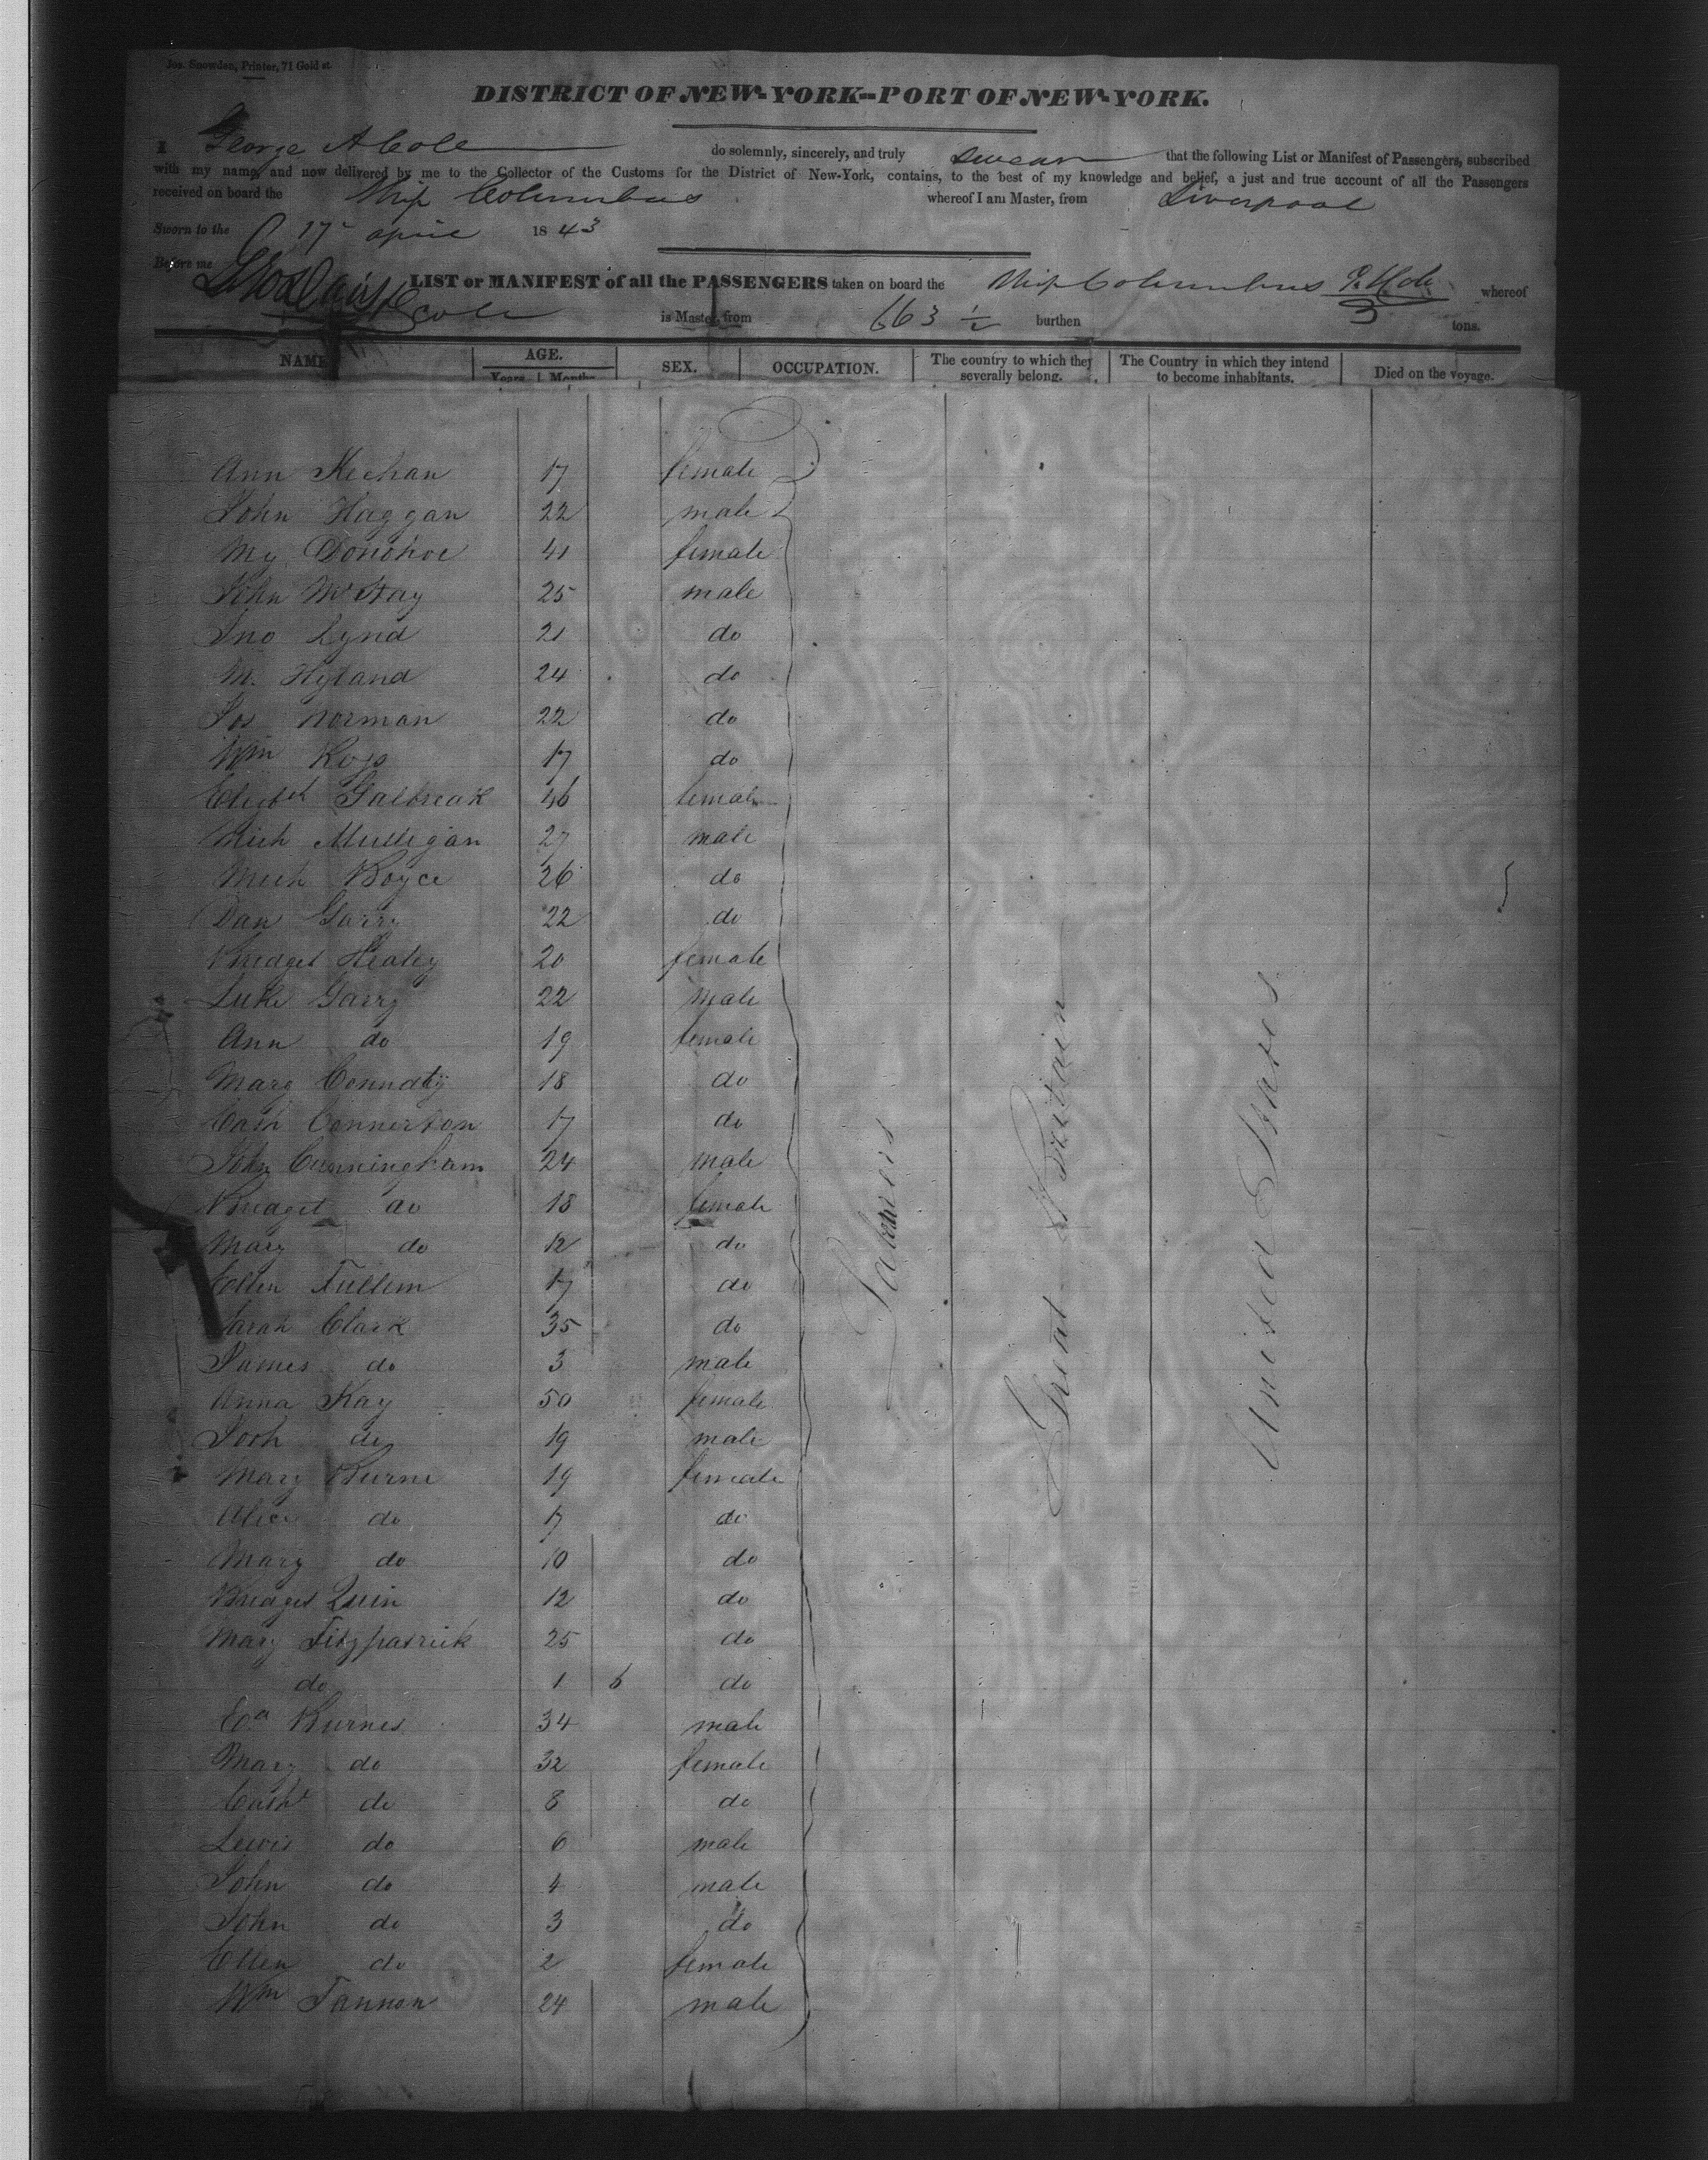 Jos. Snowden, Printer, 71 Gold st.
DISTRICT OF NEW-YORK--PORT OF NEW-YORK.
I George A Cole do solemnly, sincerely, and truly swear that the following List or Manifest of Passengers, subscribed
with my name, and now delivered by me to the Collector of the Customs for the District of New-York, contains, to the best of my knowledge and belief, a just and true account of all the Passengers
received on board the Ship Columbus whereof I am Master, from Liverpool
Sworn to the 17 april 1843
Before me
LIST or MANIFEST of all the PASSENGERS taken on board the Ship Columbus whereof
Cole is Master, from 663 1/2 burthen tons.
NAME AGE. SEX. OCCUPATION. The country to which they severally belong. The Country in which they intend to become inhabitants. Died on the voyage.
Years Months
Ann Keehan 17 female
John Haggan 22 male
My Donohoe 41 female
John McKay 25 male
Jno Lynd 21 do
M. Hyland 24 do
Jos Norman 22 do
Wm 17 do
Elizbth Galbreak 46 female
Mich Mulligan 27 male
Mich Boyce 26 do
Dan Garry 22 do
Bridget Healey 20 female
Luke Garry 22 male
Ann do 19 female
Marg Connaty 18 do
Cath Connerton 17 do
John Cunningham 24 male
Bridget do 18 female
Mary do 12 do
Ellen Fullem 17 do
Sarah Clark 35 do
James do 3 male
Anna Kay 50 female
Josh do 19 male
Mary Burne 19 female
Alice do 17 do
Mary do 10 do
Bridget Quin 12 do
Mary Fitzpatrick 25 do
do 1 6 do
Burnes 34 male
Mary do 32 female
Cath do 8 do
Lewis do 6 male
John do 4 male
John do 3 do
Ellen do 2 female
Wm Fannon 24 male
Great Britain
United States